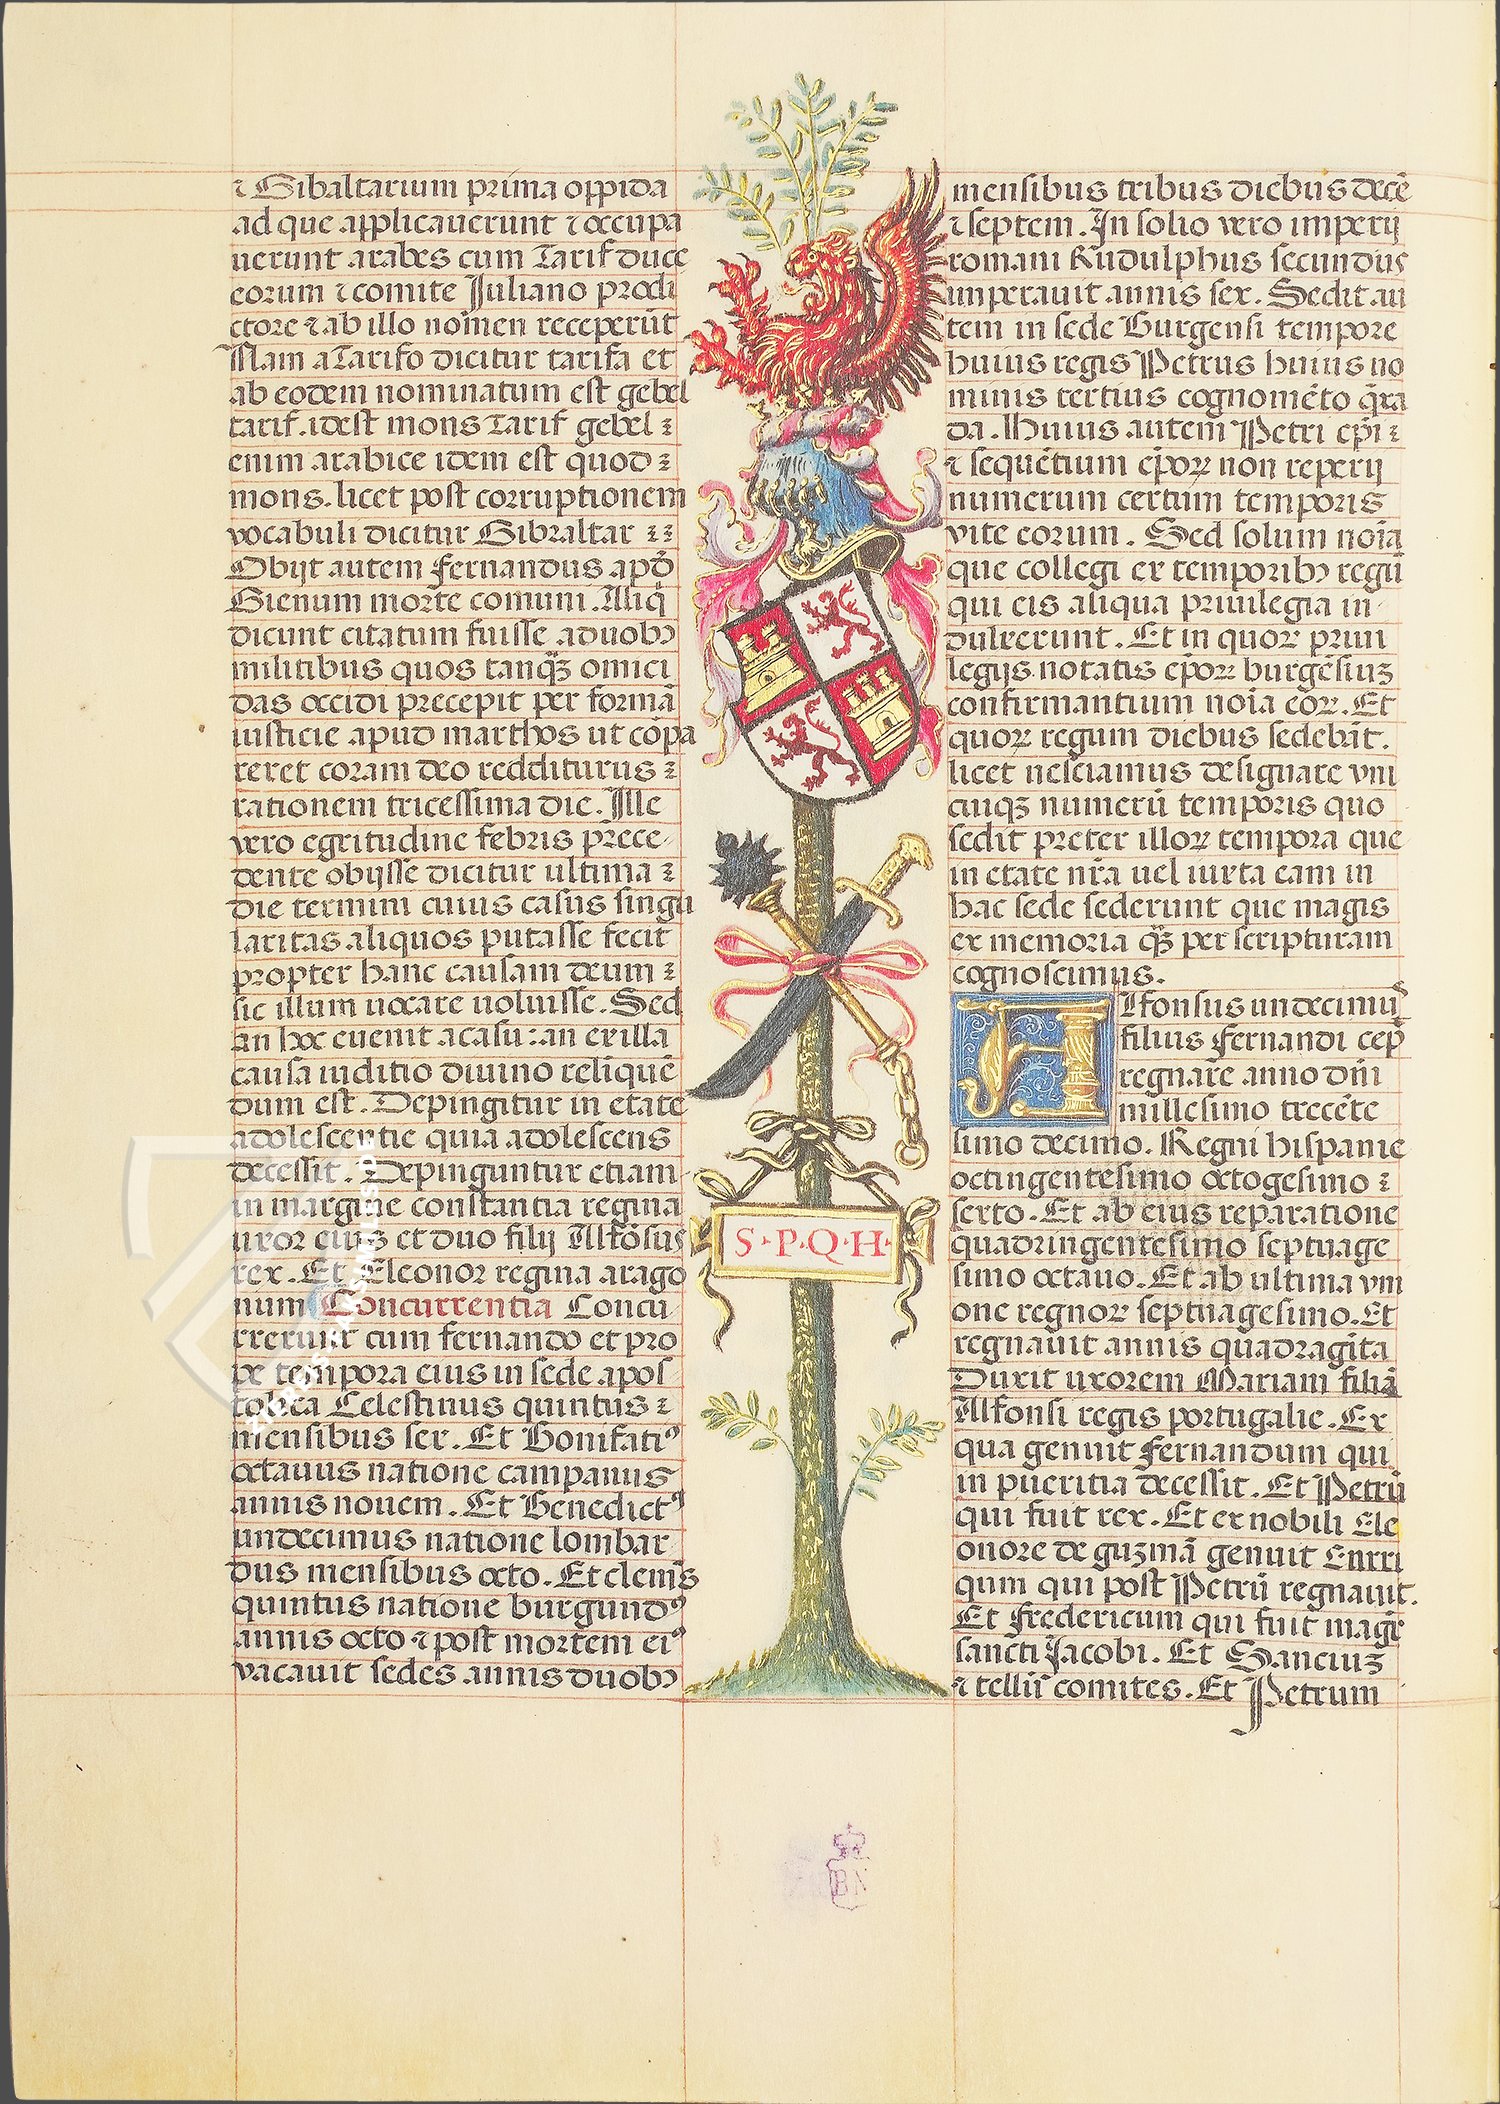 ⁊ Gibaltarium prima oppida
ad que applicauerunt ⁊ occupa
uerunt arabes cum Tarif duce
eorum ⁊ comite Juliano prodi
ctore ⁊ ab illo nomen receperūt
Nam a Tarifo dicitur tarifa et
ab eodem nominatum est gebel
tarif. idest mons Tarif gebel ⁊
enim arabice idem est quod ⁊
mons. licet post corruptionem
vocabuli dicitur Gibraltar ⁊⁊
Obijt autem fernandus apud
Gienum morte comuni. Aliq̄
dicunt citatum fuisse a duobꝰ
militibus quos tanqꝫ omici
das occidi precepit per formā
iusticie apud marthos ut cōpa
reret coram deo redditurus ⁊
rationem tricessima die. Ille
vero egritudine febris prece
dente obijsse dicitur ultima ⁊
die termini cuius casus singu
laritas aliquos putasse fecit
propter hanc causam deum ⁊
sic illum uocare uoluisse. Sed
an hoc euenit a casu: an ex illa
causa iuditio diuino reliquē
dum est. Depingitur in etate
adolescentie quia adolescens
decessit. Depinguntur etiam
in margine constantia regina
uxor eius et duo filij Alfōsus
rex. Et Eleonor regina arago
num Concurrentia Concu
rrerunt cum fernando et pro
pe tempora eius in sede apos
tolica Celestinus quintus ⁊
mensibus sex. Et Bonifatiꝰ
octauus natione campanus
annis nouem. Et Benedictꝰ
undecimus natione lombar
dus mensibus octo. Et clemēs
quintus natione burgundꝰ
annis octo ⁊ post mortem eiꝰ
vacauit sedes annis duobꝰ
S·P·Q·H·
mensibus tribus diebus decē
⁊ septem. In solio vero imperij
romani Rudulphus secundus
imperauit annis sex. Sedit au
tem in sede Burgensi tempore
huius regis Petrus huius no
minis tertius cognomēto q̄xa
da. Huius autem Petri ep̄i ⁊
⁊ sequētium ep̄oꝝ non reperij
numerum certum temporis
vite eorum. Sed solum noīa
que collegi ex temporibꝰ regū
qui eis aliqua priuilegia in
dulxerunt. Et in quoꝝ priui
legijs notatis ep̄oꝝ burgēsiuꝫ
confirmantium noīa eoꝝ. Et
quoꝝ regum diebus sedebāt.
licet nesciamus designare vni
cuiqꝫ numerū temporis quo
sedit preter illoꝝ tempora que
in etate nr̄a uel iuxta eam in
hac sede sederunt que magis
ex memoria qꝫ per scripturam
cognoscimus.
Alfonsus undecimus
filius fernandi cep̄
regnare anno dn̄i
millesimo trecēte
simo decimo. Regni hispanie
octingentesimo octogesimo ⁊
sexto. Et ab eius reparatione
quadringentesimo septuage
simo octauo. Et ab ultima vni
one regnoꝝ septuagesimo. Et
regnauit annis quadragīta
Duxit uxorem Mariam filiā
Alfonsi regis portugalie. Ex
qua genuit fernandum qui
in pueritia decessit. Et Petrū
qui fuit rex. Et ex nobili Ele
onore de guzmā genuit Enrri
qum qui post Petrū regnauit.
Et fredericum qui fuit magr̄
sancti Jacobi. Et Sanciuꝫ
⁊ telliū comites. Et Petrum
BN